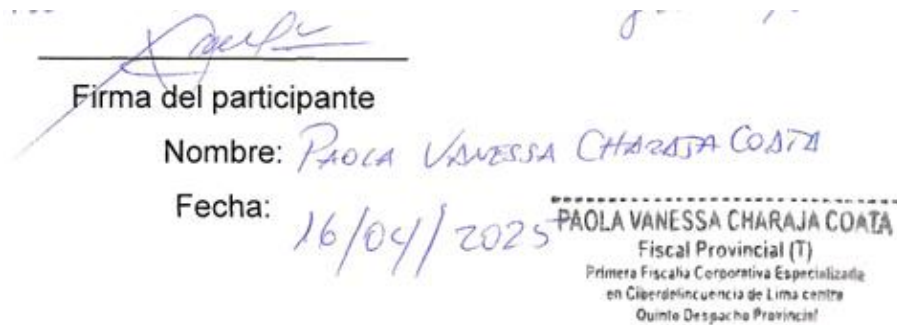 Firma del participante
Nombre: PAOLA VANESSA CHARAJA COATA
Fecha: 16/04/2025
PAOLA VANESSA CHARAJA COATA
Fiscal Provincial (T)
Primera Fiscalia Corporativa Especializada
en Ciberdelincuencia de Lima centro
Quinto Despacho Provincial